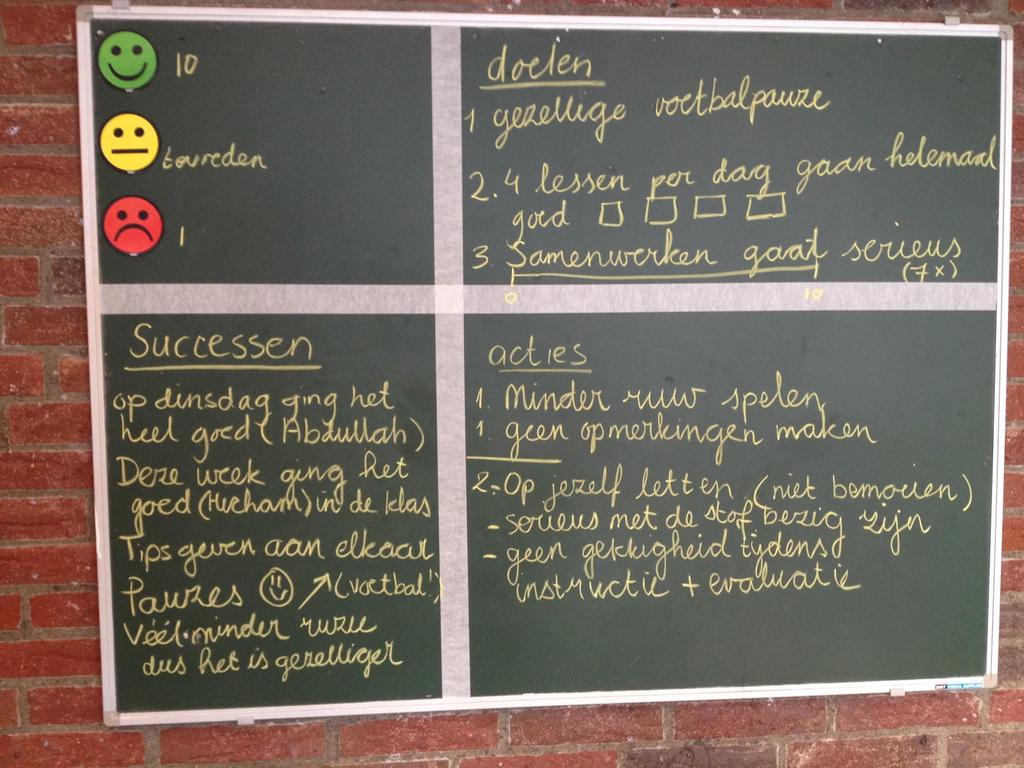 10
tevreden
1
doelen
1 gezellige voetbalpauze
2. 4 lessen per dag gaan helemaal
goed
3. Samenwerken gaat serieus
(7x)
0 10
Successen
op dinsdag ging het
heel goed (Abdullah)
Deze week ging het
goed (Hicham) in de klas
Tips geven aan elkaar
Pauzes (voetbal!)
Véél minder ruzie
dus het is gezelliger
acties
1. Minder ruw spelen
1. geen opmerkingen maken
2.- Op jezelf letten (niet bemoeien)
- serieus met de stof bezig zijn
- geen gekkigheid tijdens
instructie + evaluatie